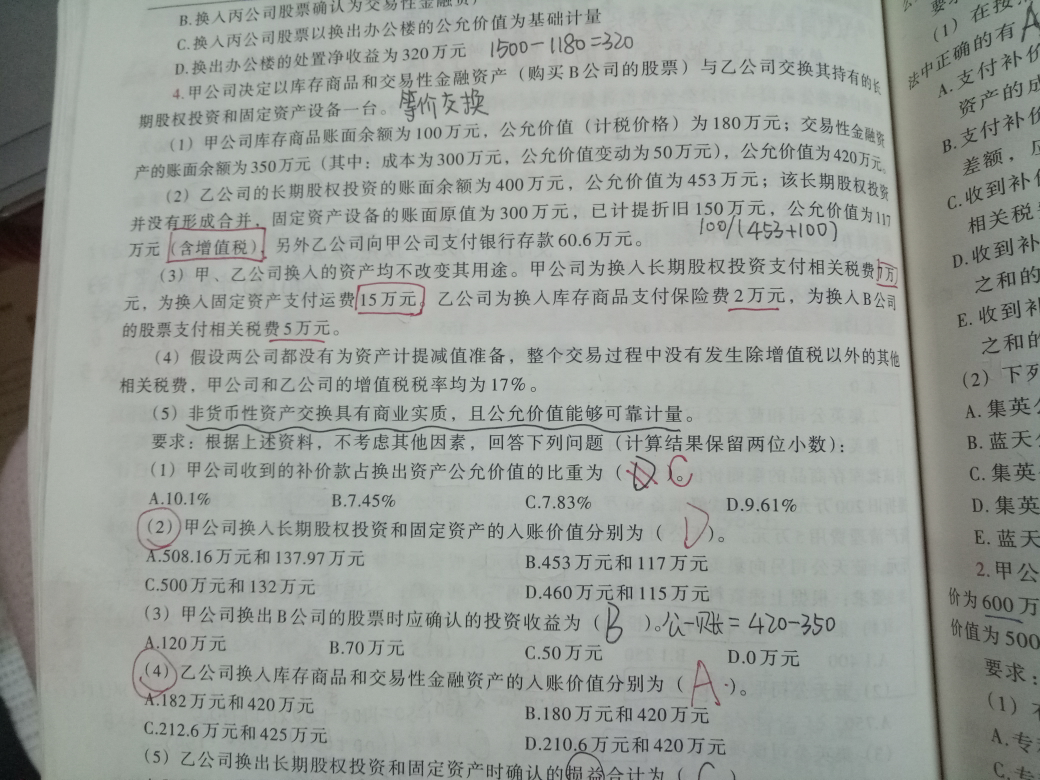 B.换入丙公司股票确认为交易性金融资产
C.换入丙公司股票以换出办公楼的公允价值为基础计量
D.换出办公楼的处置净收益为320万元 1500-1180=320
4.甲公司决定以库存商品和交易性金融资产（购买B公司的股票）与乙公司交换其持有的长
期股权投资和固定资产设备一台。等价交换
（1）甲公司库存商品账面余额为100万元，公允价值（计税价格）为180万元；交易性金融资
产的账面余额为350万元（其中：成本为300万元，公允价值变动为50万元），公允价值为420万元。
（2）乙公司的长期股权投资的账面余额为400万元，公允价值为453万元；该长期股权投资
并没有形成合并，固定资产设备的账面原值为300万元，已计提折旧150万元，公允价值为117
万元（含增值税），另外乙公司向甲公司支付银行存款60.6万元。 100/(453+100)
（3）甲、乙公司换入的资产均不改变其用途。甲公司为换入长期股权投资支付相关税费7万
元，为换入固定资产支付运费15万元。乙公司为换入库存商品支付保险费2万元，为换入B公司
的股票支付相关税费5万元。
（4）假设两公司都没有为资产计提减值准备，整个交易过程中没有发生除增值税以外的其他
相关税费，甲公司和乙公司的增值税税率均为17%。
（5）非货币性资产交换具有商业实质，且公允价值能够可靠计量。
要求：根据上述资料，不考虑其他因素，回答下列问题（计算结果保留两位小数）：
（1）甲公司收到的补价款占换出资产公允价值的比重为（D）。C
A.10.1% B.7.45% C.7.83% D.9.61%
（2）甲公司换入长期股权投资和固定资产的入账价值分别为（D）。
A.508.16万元和137.97万元 B.453万元和117万元
C.500万元和132万元 D.460万元和115万元
（3）甲公司换出B公司的股票时应确认的投资收益为（B）。公-账=420-350
A.120万元 B.70万元 C.50万元 D.0万元
（4）乙公司换入库存商品和交易性金融资产的入账价值分别为（A）。
A.182万元和420万元 B.180万元和420万元
C.212.6万元和425万元 D.210.6万元和420万元
（5）乙公司换出长期股权投资和固定资产时确认的损益合计为（C）
（1）在按
法中正确的有A
A.支付补价
资产的成
B.支付补价
差额，应
C.收到补价
相关税
D.收到补
之和的
E.收到补
之和的
（2）下列
A.集英
B.蓝天
C.集英
D.集英
E.蓝天
2.甲公
价为600万
价值为500
要求：
（1）
A.专
C.专